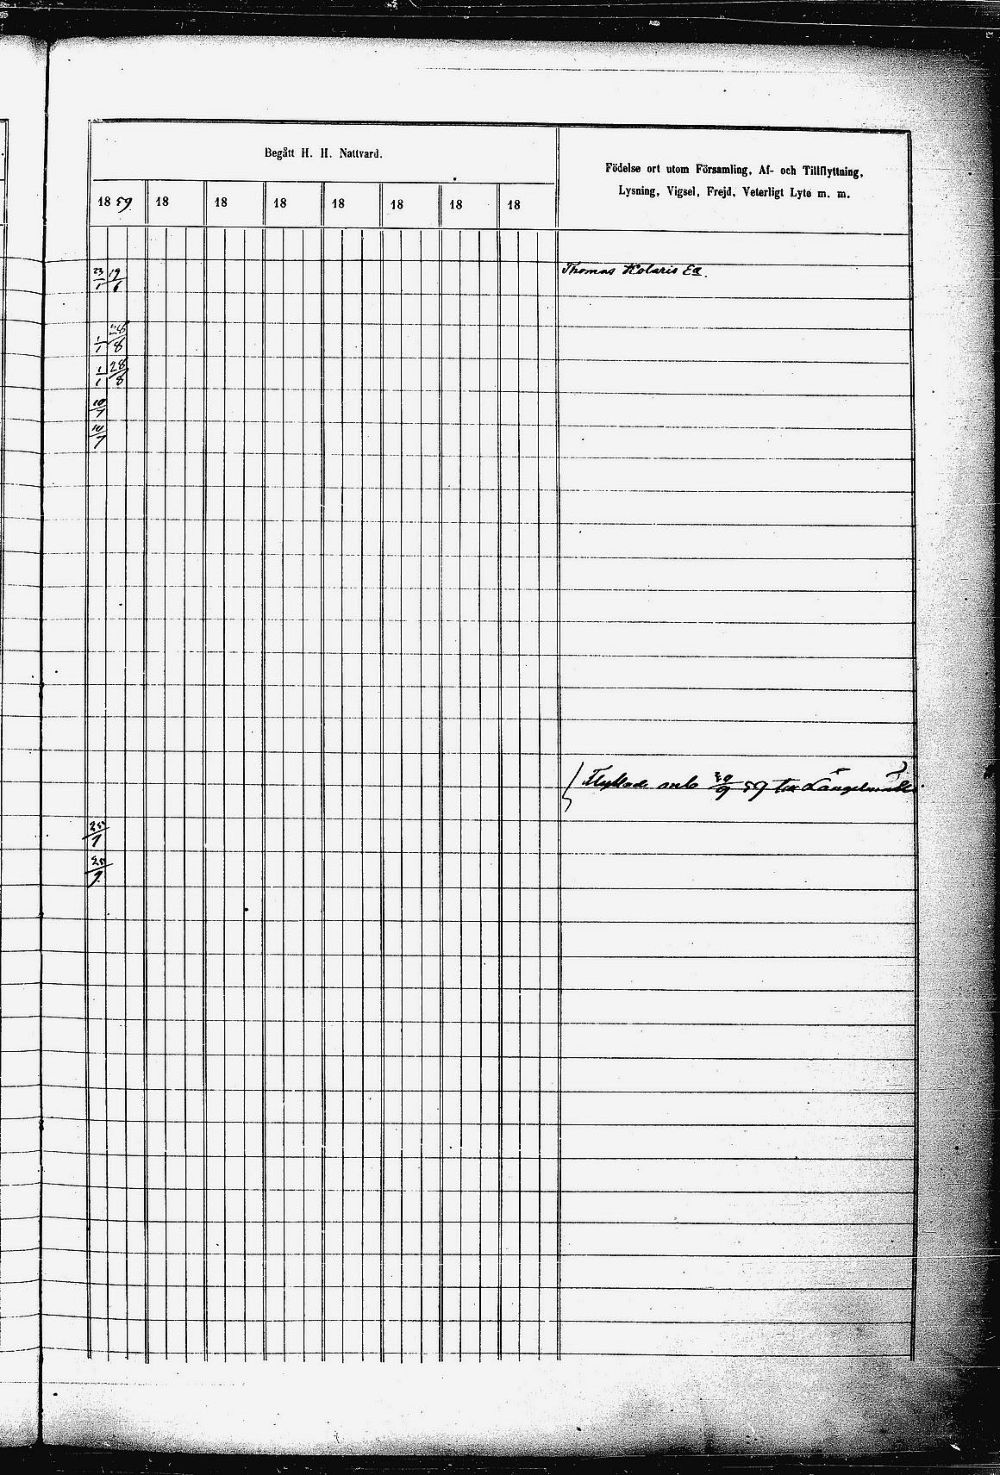 Begått H. H. Nattvard.
Födelse ort utom Församling, Af- och Tillflyttning,
Lysning, Vigsel, Frejd, Veterligt Lyte m. m.
18 59 18 18 18 18 18 18 18
23/1 19/6 Thomas Kolaris
1/1 28/8
1/1 28/8
10/7
10/7
Flyttade 59 Längelmäki
25/9